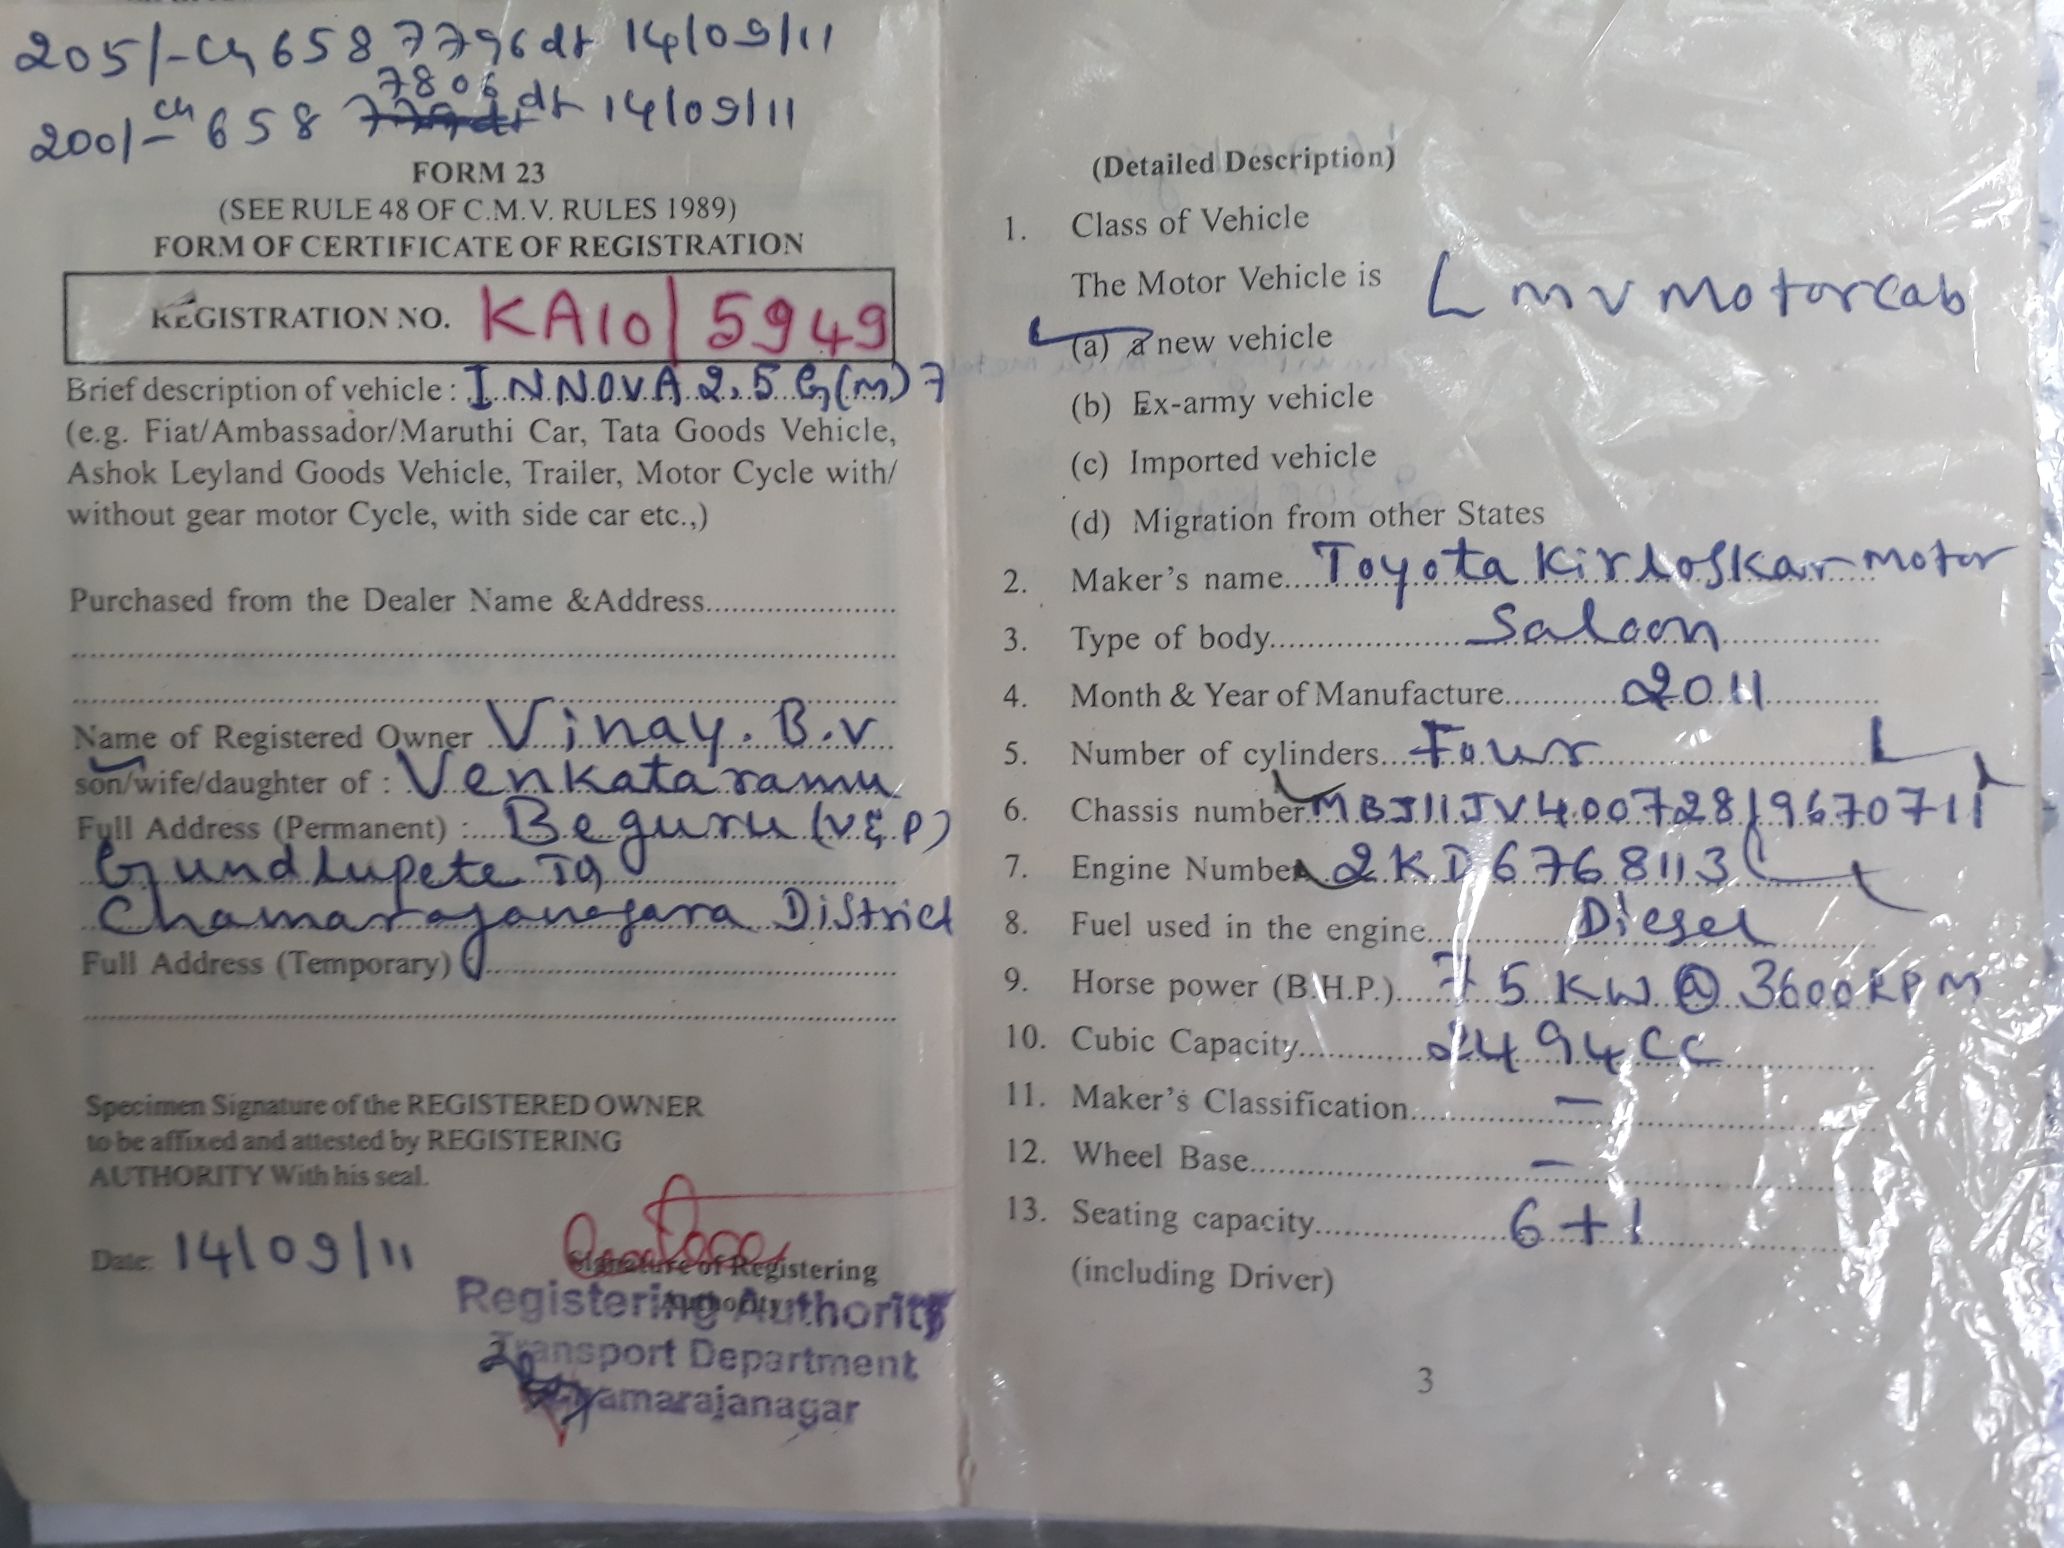 205/- Ch 658 7796 dt 14/09/11
7806
200/- ch 658 dt 14/09/11
FORM 23
(SEE RULE 48 OF C.M.V. RULES 1989)
FORM OF CERTIFICATE OF REGISTRATION
REGISTRATION NO. KA10/5949
Brief description of vehicle : INNOVA 2.5 G(M) 7
(e.g. Fiat/Ambassador/Maruthi Car, Tata Goods Vehicle,
Ashok Leyland Goods Vehicle, Trailer, Motor Cycle with/
without gear motor Cycle, with side car etc.,)
Purchased from the Dealer Name &Address
Name of Registered Owner Vinay. B.V
son/wife/daughter of : Venkataramu
Full Address (Permanent) : Beguru (V&P)
Gundlupete TQ
Chamarajanagara District
Full Address (Temporary)
Specimen Signature of the REGISTERED OWNER
to be affixed and attested by REGISTERING
AUTHORITY With his seal.
Date: 14/09/11
Signature of Registering
Authority
Registering Authority
Transport Department
Chamarajanagar
(Detailed Description)
1. Class of Vehicle
The Motor Vehicle is LMV Motorcab
(a) a new vehicle
(b) Ex-army vehicle
(c) Imported vehicle
(d) Migration from other States
2. Maker's name Toyota Kirloskar motor
3. Type of body Saloon
4. Month & Year of Manufacture 2011
5. Number of cylinders Four
6. Chassis number MBJ11JV40072819670711
7. Engine Number 2KD6768113
8. Fuel used in the engine Diesel
9. Horse power (B.H.P.) 75 KW @ 3600RPM
10. Cubic Capacity 2494CC
11. Maker's Classification -
12. Wheel Base -
13. Seating capacity 6+1
(including Driver)
3